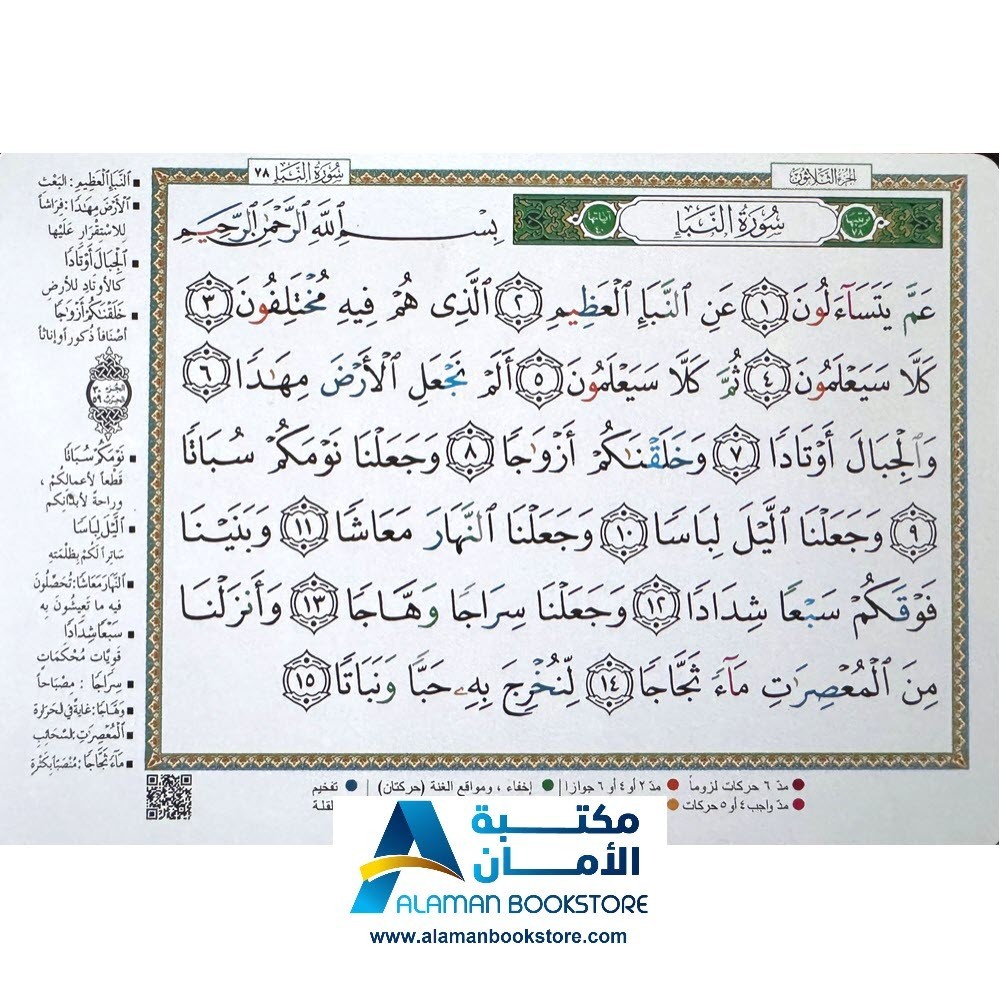 الجزء الثلاثون
سُورَةُ النَّبَإِ ٧٨
ترتيبها ٧٨
سُورَةُ النَّبَإِ
آياتها ٤٠
بِسْمِ ٱللَّهِ ٱلرَّحْمَٰنِ ٱلرَّحِيمِ
عَمَّ يَتَسَآءَلُونَ ١ عَنِ ٱلنَّبَإِ ٱلْعَظِيمِ ٢ ٱلَّذِى هُمْ فِيهِ مُخْتَلِفُونَ ٣
كَلَّا سَيَعْلَمُونَ ٤ ثُمَّ كَلَّا سَيَعْلَمُونَ ٥ أَلَمْ نَجْعَلِ ٱلْأَرْضَ مِهَٰدًا ٦
وَٱلْجِبَالَ أَوْتَادًا ٧ وَخَلَقْنَٰكُمْ أَزْوَٰجًا ٨ وَجَعَلْنَا نَوْمَكُمْ سُبَاتًا
٩ وَجَعَلْنَا ٱلَّيْلَ لِبَاسًا ١٠ وَجَعَلْنَا ٱلنَّهَارَ مَعَاشًا ١١ وَبَنَيْنَا
فَوْقَكُمْ سَبْعًا شِدَادًا ١٢ وَجَعَلْنَا سِرَاجًا وَهَّاجًا ١٣ وَأَنزَلْنَا
مِنَ ٱلْمُعْصِرَٰتِ مَآءً ثَجَّاجًا ١٤ لِّنُخْرِجَ بِهِۦ حَبًّا وَنَبَاتًا ١٥
ٱلنَّبَإِ ٱلْعَظِيمِ: البَعْث
ٱلْأَرْضَ مِهَٰدًا: فِرَاشاً
للاسْتِقْرَارِ عَلَيْها
ٱلْجِبَالَ أَوْتَادًا
كالأوتادِ للأرضِ
خَلَقْنَٰكُمْ أَزْوَٰجًا
أصْنَافاً ذُكوراً وإناثاً
الجزء ٣٠
الحزب ٥٩
نَوْمَكُمْ سُبَاتًا
قَطْعاً لأعمالِكُمْ ،
وراحةً لأبدانِكم
ٱلَّيْلَ لِبَاسًا
سَاتِراً لَكُمْ بِظُلْمَتِه
ٱلنَّهَارَ مَعَاشًا: تُحَصِّلُونَ
فيه ما تَعِيشُونَ به
سَبْعًا شِدَادًا
قَوِيَّاتٍ مُحْكَمَاتٍ
سِرَاجًا : مِصْبَاحاً
وَهَّاجًا: غايةً في الحَرَارة
ٱلْمُعْصِرَٰتِ: السَّحَائِبِ
مَآءً ثَجَّاجًا: مُنْصَبّاً بِكَثْرَة
مدّ ٦ حركات لزوماً مدّ ٢ أو ٤ أو ٦ جوازاً إخفاء ، ومواقع الغنة (حركتان) تفخيم
مدّ واجب ٤ أو ٥ حركات
مكتبة
الأمان
ALAMAN BOOKSTORE
www.alamanbookstore.com